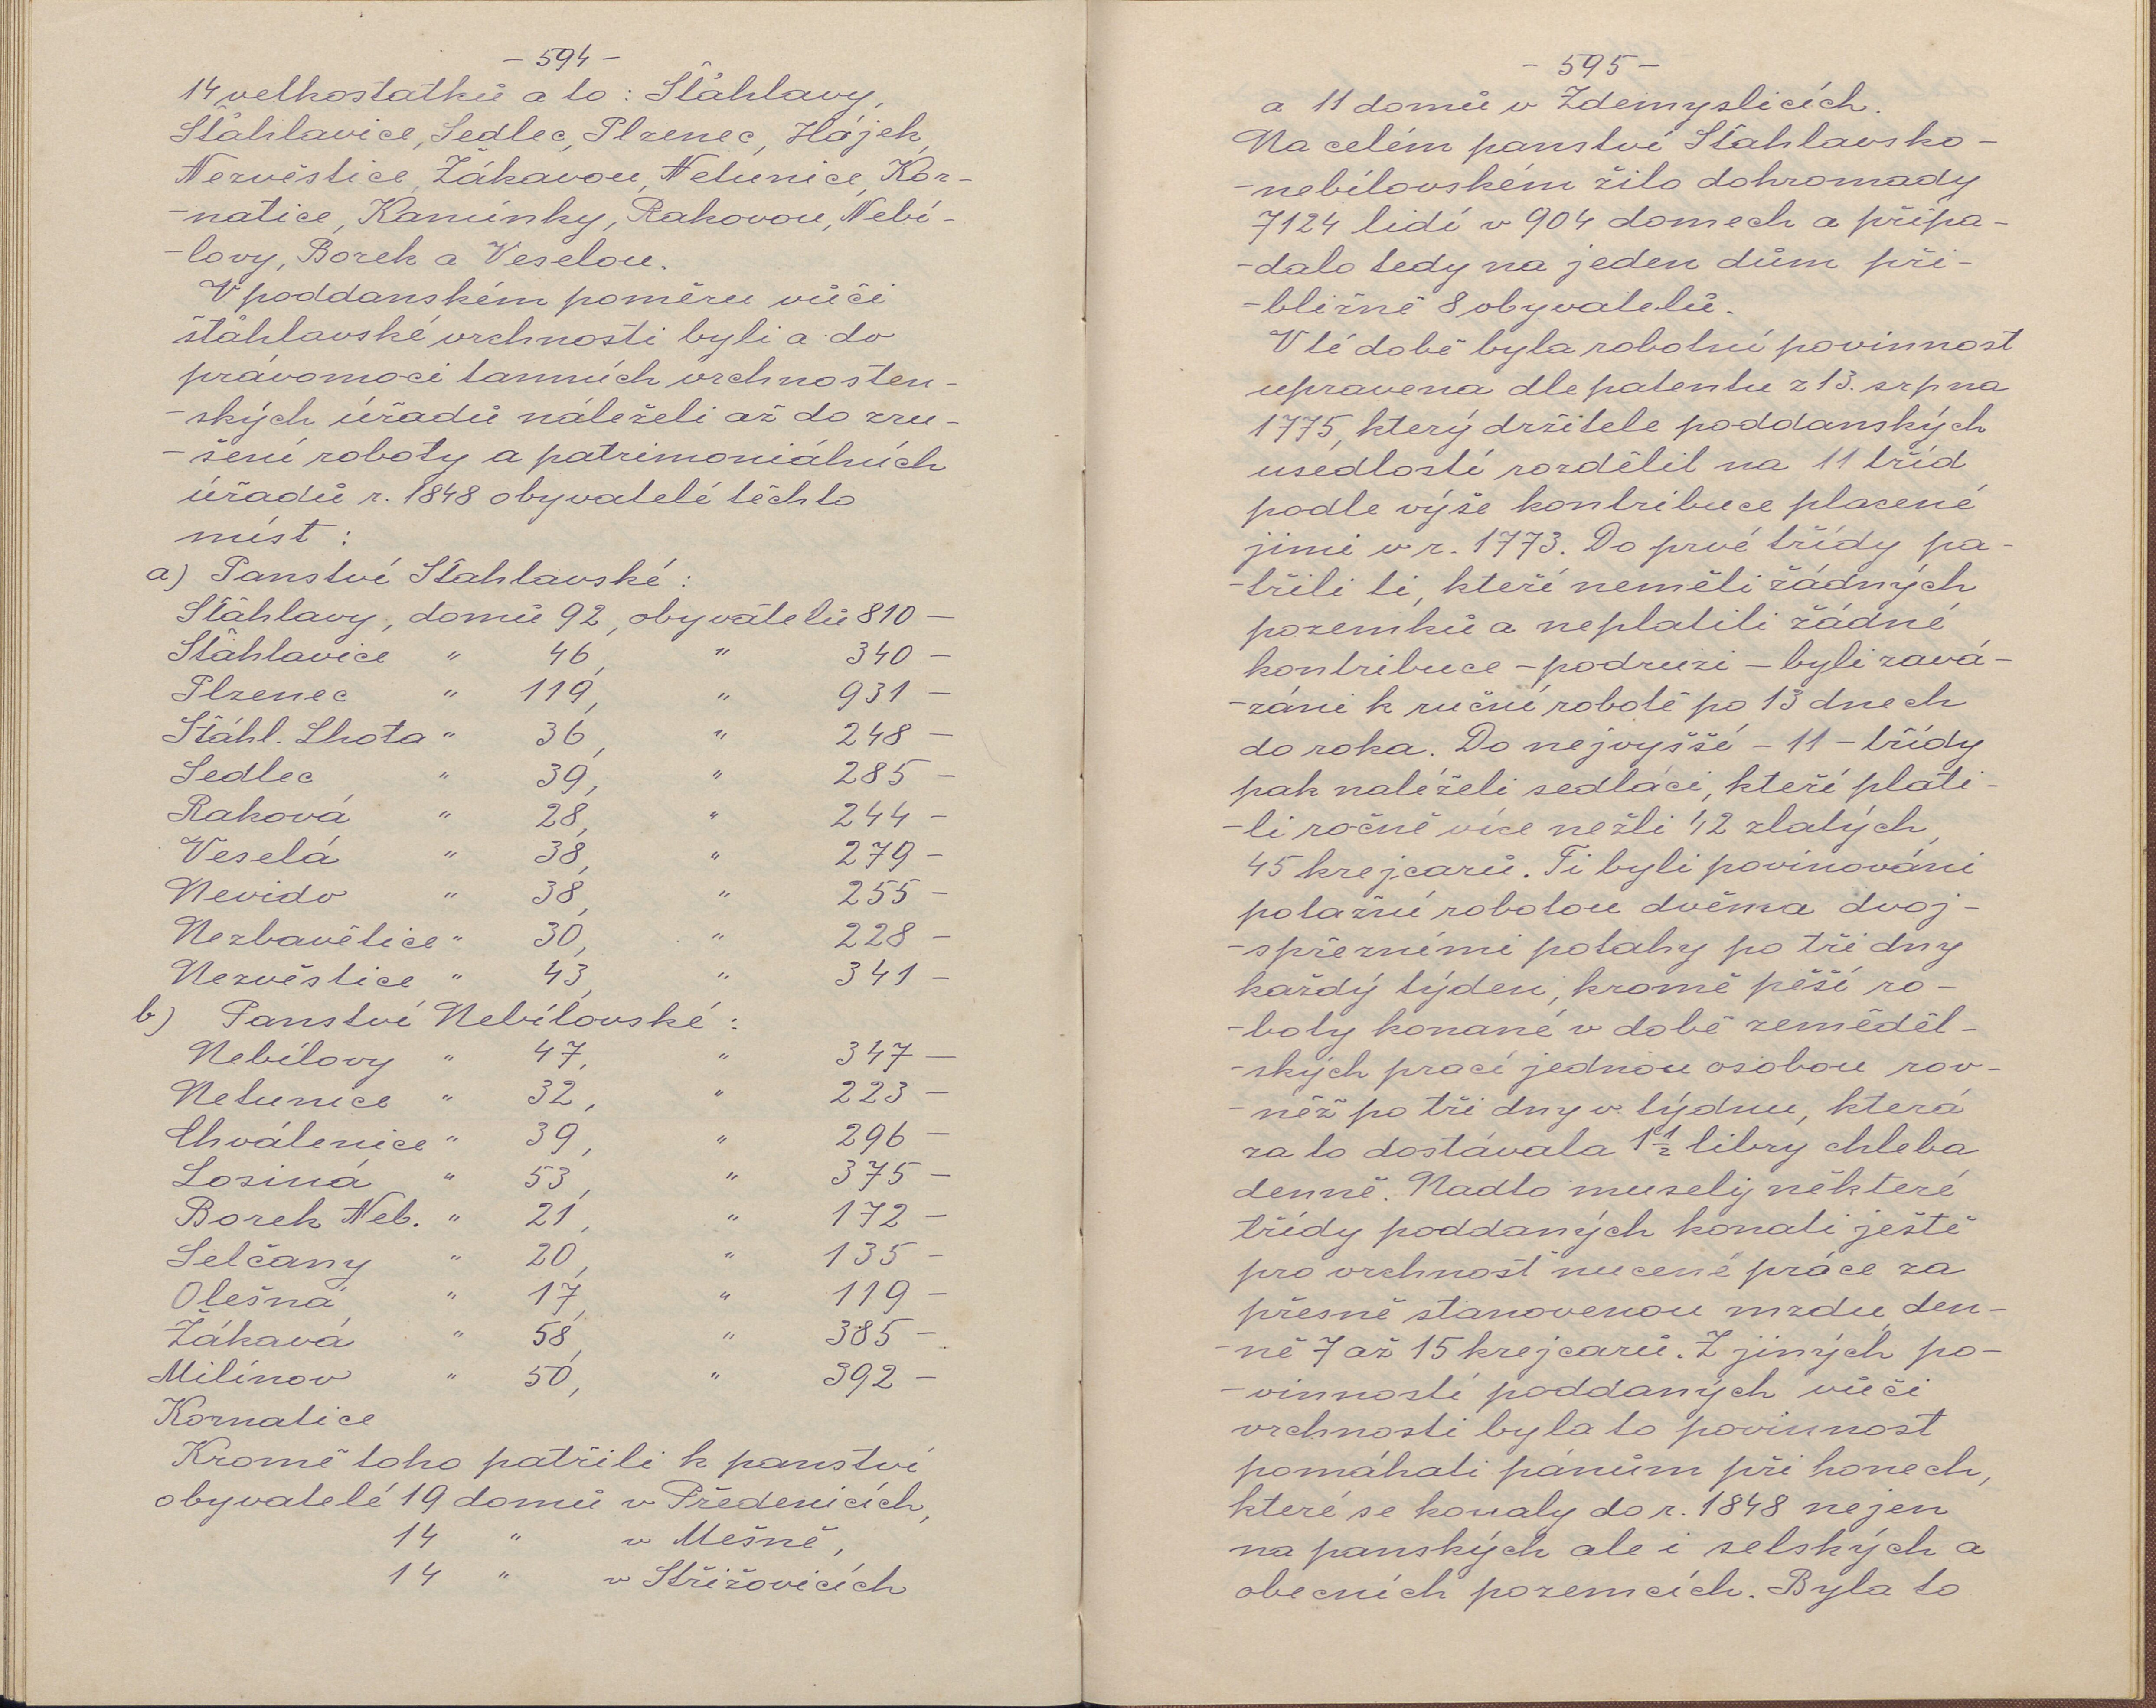 - 594 -
14 velkostatků a to: Šťáhlavy,
Šťáhlavice, Sedlec, Plzenec, Hájek,
Nezvěstice, Žákavou, Netunice, Kor-
-natice, Kamínky, Rakovou, Nebí-
-lovy, Borek a Veselou.
V poddanském poměru vůči
šťáhlavské vrchnosti byli a do
právomoci tamních vrchnosten-
-ských úřadů náleželi až do zru-
-šení roboty a patrimoniálních
úřadů r. 1848 obyvatelé těchto
míst:
a) Panství Šťahlavské:
Šťáhlavy, domů 92, obyvatelů 810 -
Šťáhlavice " 46, " 340 -
Plzenec " 119, " 931 -
Šťáhl. Lhota " 36, " 248 -
Sedlec " 39, " 285 -
Raková " 28, " 244 -
Veselá " 38, " 279 -
Nevido " 38, " 255 -
Nezbavětice " 30, " 228 -
Nezvěstice " 43, " 341 -
b) Panství Nebílovské:
Nebílovy " 47, " 347 -
Netunice " 32, " 223 -
Chválenice " 39, " 296 -
Losiná " 53, " 375 -
Borek Neb. " 21, " 172 -
Selčany " 20, " 135 -
Olešná " 17, " 119 -
Žákavá " 58, " 385 -
Milínov " 50, " 392 -
Kornatice
Kromě toho patřili k panství
obyvatelé 19 domů v Předenicích,
14 " v Mešně,
14 " v Střížovicích
- 595 -
a 11 domů v Zdemyslicích.
Na celém panství Šťahlavsko-
-nebílovském žilo dohromady
7124 lidí v 904 domech a připa-
-dalo tedy na jeden dům při-
-bližně 8 obyvatelů.
V té době byla robotní povinnost
upravena dle patentu z 13. srpna
1775, který držitele poddanských
usedlostí rozdělil na 11 tříd
podle výše kontribuce placené
jimi v r. 1773. Do prvé třídy pa-
-třili ti, kteří neměli žádných
pozemků a neplatili žádné
kontribuce - podruzi - byli zavá-
-záni k ruční robotě po 13 dnech
do roka. Do nejvyšší - 11 - třídy
pak naléželi sedláci, kteří plati-
-li ročně více nežli 42 zlatých,
45 krejcarů. Ti byli povinováni
potažní robotou dvěma dvoj-
-spřežními potahy po tři dny
každý týden, kromě pěší ro-
-boty konané v době zeměděl-
-ských prací jednou osobou rov-
-něž po tři dny v týdnu, která
za to dostávala 1½ libry chleba
denně. Nadto musely některé
třídy poddaných konati ještě
pro vrchnost nucené práce za
přesně stanovenou mzdu den-
-ně 7 až 15 krejcarů. Z jiných po-
-vinností poddaných vůči
vrchnosti byla to povinnost
pomáhati pánům při honech,
které se konaly do r. 1848 nejen
na panských ale i selských a
obecních pozemcích. Byla to